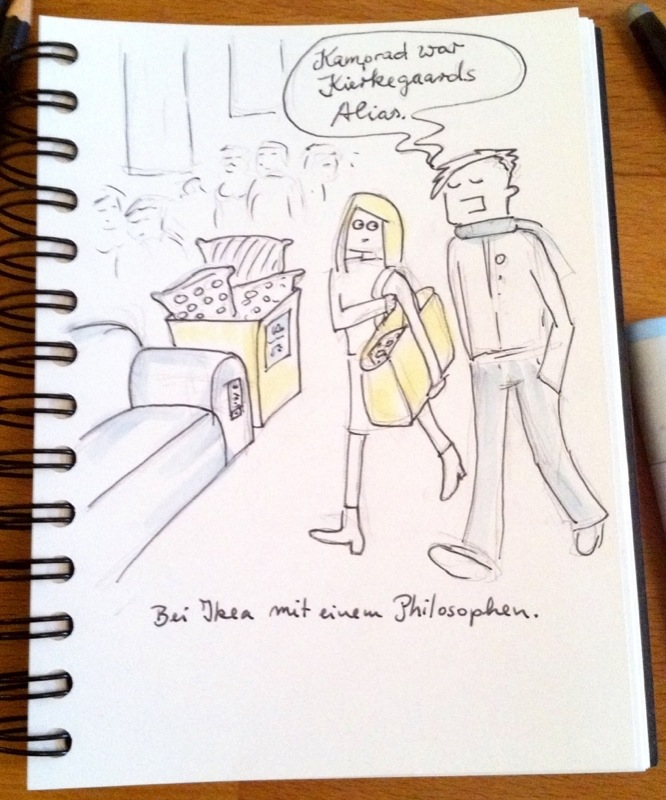 Kamprad war
Kierkegaards
Alias.
Bei Ikea mit einem Philosophen.